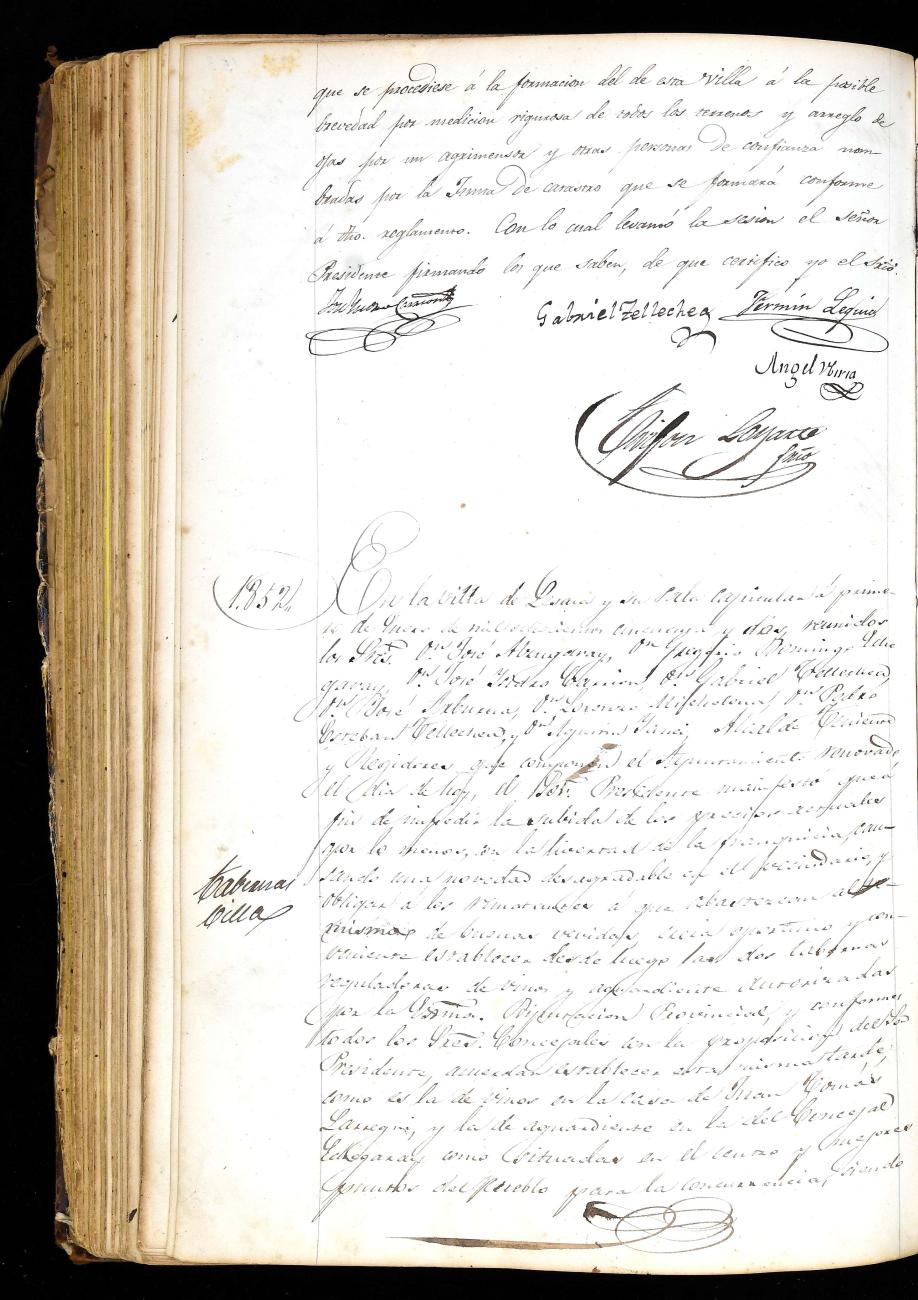 que se procediese á la formacion del de esta Villa á la posible
brevedad por medicion rigurosa de todos los terrenos y arreglo de
ojas por un agrimensor y otras personas de confianza nom-
bradas por la Junta de catastro que se formará conforme
á dho. reglamento. Con lo cual levantó la sesion el señor
Presidente firmando los que saben, de que certifico yo el Srio.
Gabriel Tellechea Fermín Leguia
Angel Yriria
Loyarte
Srio
1.852
En la villa de Lesaca y su Sala capitular á prime-
ro de Enero de mil ochocientos cincuenta y dos, reunidos
los Sres. Dn. José Alzugaray, Dn. Gregorio Domingo Eche
garay, Dn. José Ysidro Carrion, Dn. Gabriel Tellechea,
Dn. José Saburena, Dn. Lorenzo Michelena, Dn. Pedro
Esteban Tellechea, y Dn. Agustin Alcalde Teniente
y Regidores que componen el Ayuntamiento renovado
el dia de hoy, el Sor. Presidente manifestó que á
fin de impedir la subida de los precios actuales
por lo menos, con la livertad de la franquicia, cau-
sando una novedad desagradable en el vecindario, y
obligar á los rematantes á que abastezcan al
mismo de buenas vevidas, creia oportuno y con-
veniente establecer desde luego las dos tabernas
reguladoras de vinos y aguardiente autorizadas
por la Exma. Diputacion Provincial, y conformes
todos los Sres. Concejales con la proposicion del Sor
Presidente, acuerdan establecer esta misma tarde,
como es la de vinos en la casa de Juan Tomás
Larregui, y la de aguardiente en la del Concejal
Echegaray como situadas en el centro y mejores
puntos del Pueblo para la concurrencia, siendo
Tabernas
Villa